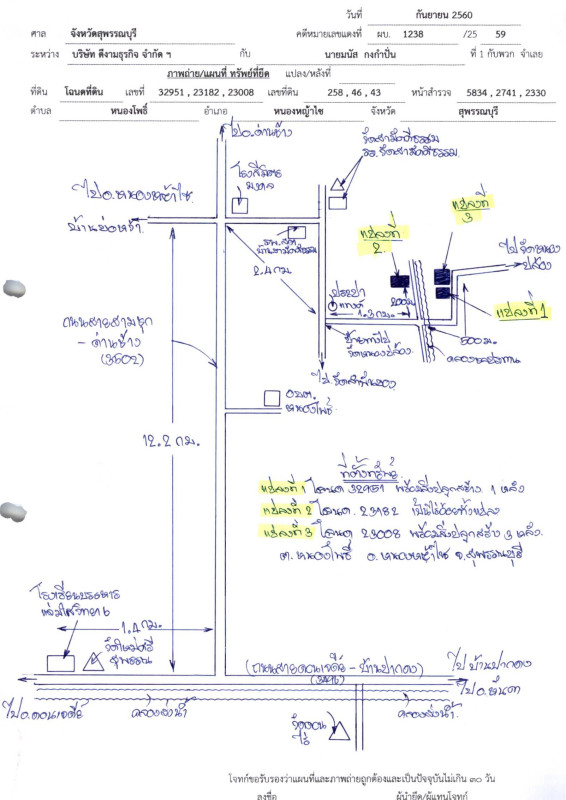 วันที่ กันยายน 2560
ศาล จังหวัดสุพรรณบุรี คดีหมายเลขแดงที่ ผบ. 1238 /25 59
ระหว่าง บริษัท ดีงามธุรกิจ จำกัด ฯ กับ นายมนัส กงกำปั่น ที่ 1 กับพวก จำเลย
ภาพถ่าย/แผนที่ ทรัพย์ที่ยึด แปลง/หลังที่
ที่ดิน โฉนดที่ดิน เลขที่ 32951 , 23182 , 23008 เลขที่ดิน 258 , 46 , 43 หน้าสำรวจ 5834 , 2741 , 2330
ตำบล หนองโพธิ์ อำเภอ หนองหญ้าไซ จังหวัด สุพรรณบุรี
ไปอ.ด่านช้าง
โรงสีมิตร
มงคล
ไปอ.หนองหญ้าไซ
แปลงที่
3
แปลงที่
2
แปลงที่ 1
2.4 กม.
ประปา
1.3 กม.
200ม
500ม.
คลองชลประทาน
ถนนสายสามชุก
- ด่านช้าง
(3502)
อบต.
หนองโพธิ์
12.2 กม.
ที่ตั้งทรัพย์
แปลงที่ 1 โฉนด 32951 พร้อมสิ่งปลูกสร้าง 1 หลัง
แปลงที่ 2 โฉนด. 23182 เป็นไร่อ้อยทั้งแปลง
แปลงที่ 3 โฉนด 23008 พร้อมสิ่งปลูกสร้าง 3 หลัง.
ต. หนองโพธิ์ อ. หนองหญ้าไซ จ. สุพรรณบุรี
โรงเรียนบรรหาร
แจ่มใสวิทยา 6
1.4 กม.
วัดใหม่ศรี
สุพรรณ
(ถนนสายดอนเจดีย์ - บ้านปากดง)
ไปบ้านปากดง
ไปอ.ดอนเจดีย์
คลองส่งน้ำ
คลองส่งน้ำ
โจทก์ขอรับรองว่าแผนที่และภาพถ่ายถูกต้องและเป็นปัจจุบันไม่เกิน ๓๐ วัน
ลงชื่อ ผู้นำยึด/ผู้แทนโจทก์